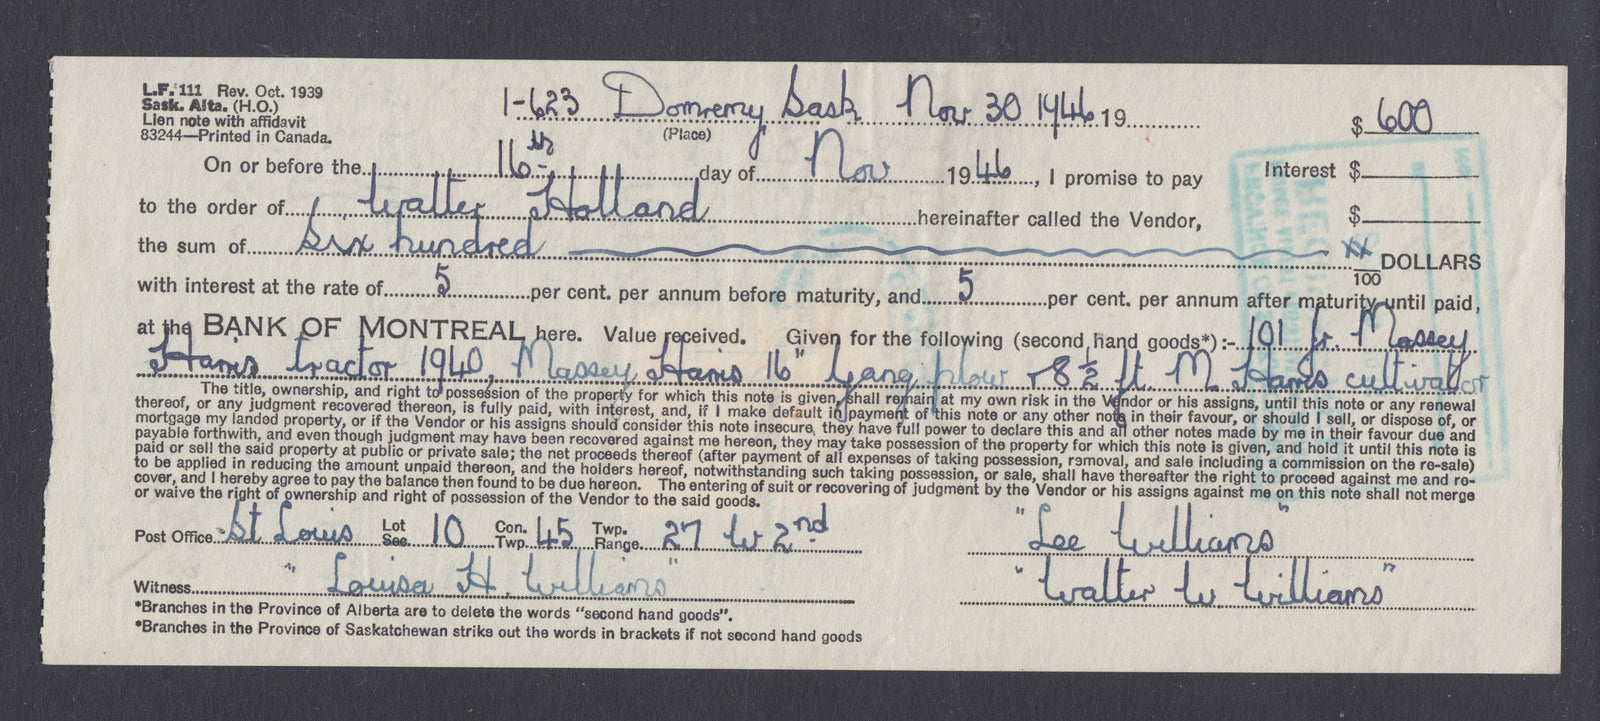 L.F. 111 Rev. Oct. 1939
Sask. Alta. (H.O.)
Lien note with affidavit
83244—Printed in Canada.
1-623 Domremy Sask Nov 30 1946 19
(Place)
$ 600
On or before the 16th day of Nov 1946, I promise to pay
Interest $
to the order of Walter Holland hereinafter called the Vendor,
$
the sum of Six hundred XX/100 DOLLARS
with interest at the rate of 5 per cent. per annum before maturity, and 5 per cent. per annum after maturity until paid,
at the BANK OF MONTREAL here. Value received. Given for the following (second hand goods*):- 101 Jr. Massey
Harris tractor 1940, Massey Harris 16" Gang plow + 8½ ft. M Harris cultivator
The title, ownership, and right to possession of the property for which this note is given, shall remain at my own risk in the Vendor or his assigns, until this note or any renewal
thereof, or any judgment recovered thereon, is fully paid, with interest, and, if I make default in payment of this note or any other note in their favour, or should I sell, or dispose of, or
mortgage my landed property, or if the Vendor or his assigns should consider this note insecure, they have full power to declare this and all other notes made by me in their favour due and
payable forthwith, and even though judgment may have been recovered against me hereon, they may take possession of the property for which this note is given, and hold it until this note is
paid or sell the said property at public or private sale; the net proceeds thereof (after payment of all expenses of taking possession, removal, and sale including a commission on the re-sale)
to be applied in reducing the amount unpaid thereon, and the holders hereof, notwithstanding such taking possession, or sale, shall have thereafter the right to proceed against me and re-
cover, and I hereby agree to pay the balance then found to be due hereon. The entering of suit or recovering of judgment by the Vendor or his assigns against me on this note shall not merge
or waive the right of ownership and right of possession of the Vendor to the said goods.
Post Office St Louis Lot Sec. 10 Con. Twp. 45 Twp. Range 27 W 2nd
"Lee Williams"
Witness "Louisa H. Williams"
"Walter W Williams"
*Branches in the Province of Alberta are to delete the words "second hand goods".
*Branches in the Province of Saskatchewan strike out the words in brackets if not second hand goods